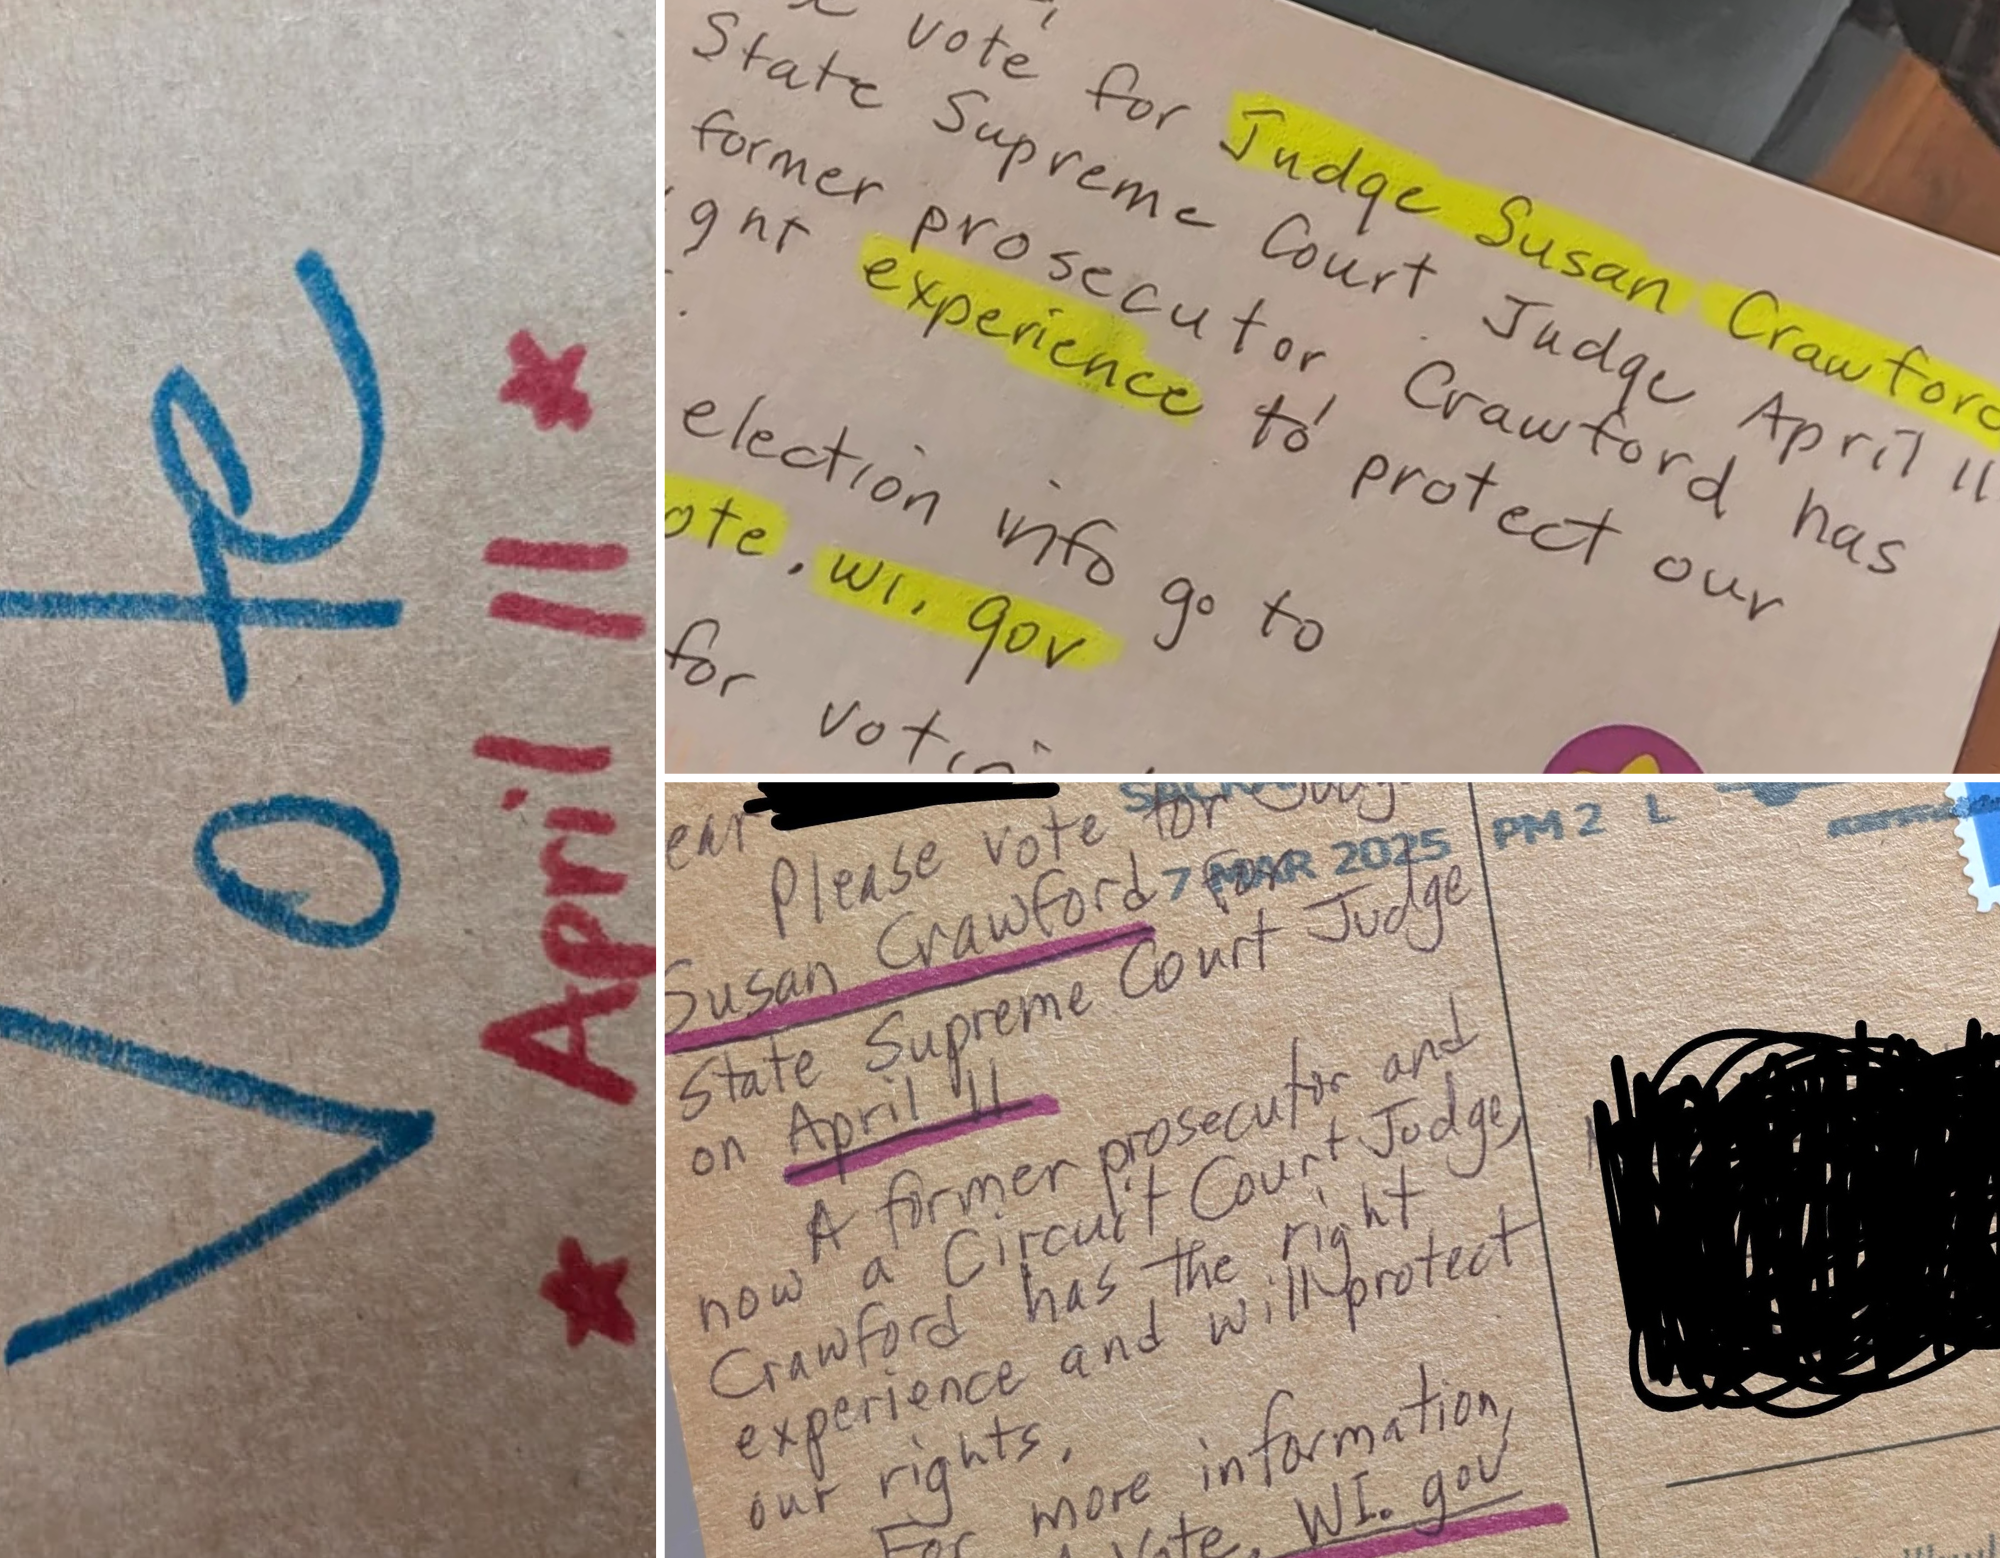 Vote
★ April 11 ★
vote for Judge Susan Crawford
State Supreme Court Judge April 11
former prosecutor Crawford has
experience to protect our
election info go to
ote.wi.gov
for
Please vote for
Susan Crawford for
7 MAR 2025 PM 2 L
State Supreme Court Judge
on April 11
A former prosecutor and
now a Circuit Court Judge,
Crawford has the right
experience and will protect
our rights.
For more information,
Vote.WI.gov